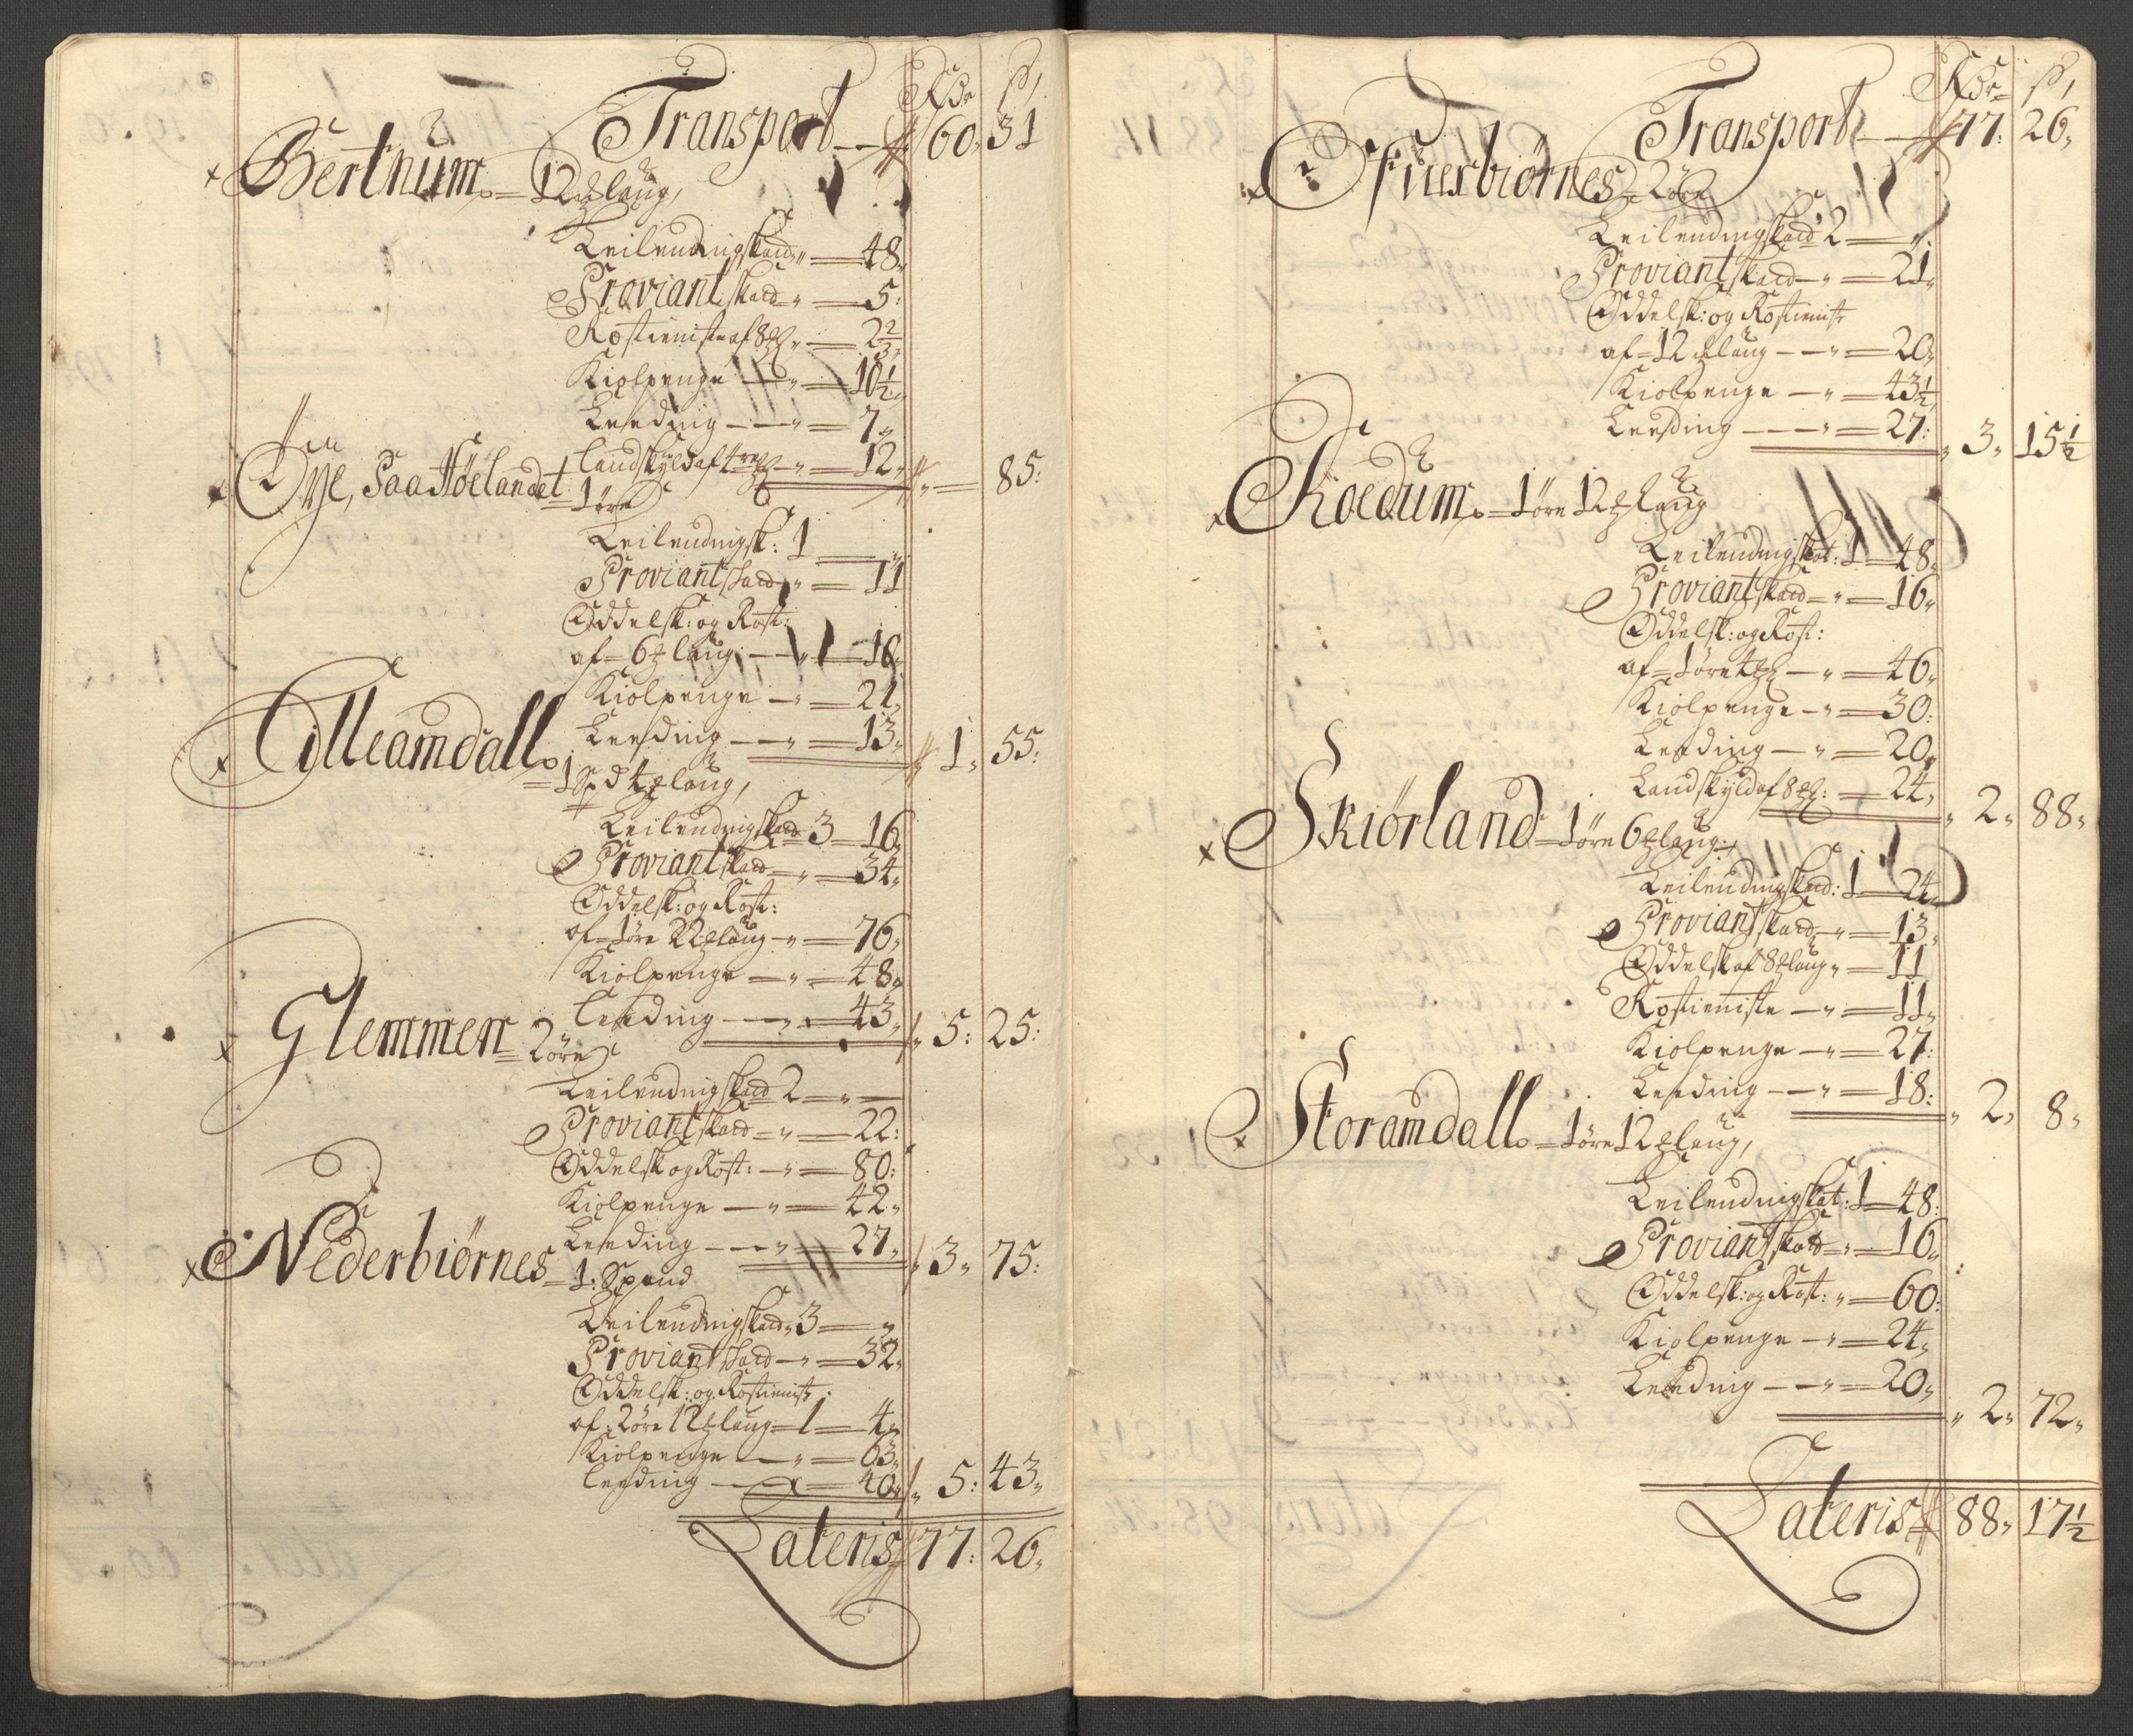 Rdr ß
Transport — 60, 31
Bertnúm = 12 ℔ laug,
Leilendingskad „ = 48„
Proviantskad „ = 5:
Rostieniste af 8 ℔ „ — 2 2/3„
Kiolpenge — „ = 10 1/2„
Leeding — — „ = 7„
Landskyld af 4 — „ = 12„ „ = 85:
Øye, Paa Høelandet = 1 öre
Leilendingsk: 1 — „
Proviantskad „ = 11
Oddelsk: og Rost:
af = 6 ℔ laug — „ = 10„
Kiolpenge — „ = 21„
Leeding — — „ = 13„ 1„ 55:
Lilleamdall
= 1 Spd 4 ℔ laug,
Leilendingskad 3 — 16„
Proviantskad = „ = 34„
Oddelsk: og Rost:
af = 1 öre 22 ℔ laug — „ = 76„
Kiolpenge — „ = 48„
Leeding — — „ = 43„ 5: 25:
Glemmen = 2 öre
Leilendingskad 2 — „ —
Proviantskad = „ = 22:
Oddelsk og Rost: — „ = 80:
Kiolpenge — „ = 42„
Leeding — — „ = 27„ 3„ 75:
Nederbiörnes = 1: Spand
Leilendingskad „ 3 — „
Proviantskad — „ = 32„
Oddelsk: og Rostieniste
af: 2 öre 12 ℔ laug = 1 — 4„
Kiolpenge — „ = 63„
Leeding — = 40„ „ 5: 43„
Lateris 77: 26„

Rdr ß
Transport — 77: 26„
Ofuerbiörnes = 2 öre
Leilendingskad 2 — „
Proviantskad — „ = 21„
Oddelsk: og Rostieniste
af = 12 ℔ laug — — „ = 20„
Kiolpenge — „ = 43 1/2„
Leeding — — „ = 27: „ 3„ 15 1/2
Roedúm = 1 öre 12 ℔ laug
Leilendingskat: 1 — 48„
Proviantskad = „ = 16„
Oddelsk: og Rost:
af = 1 öre 4 ℔ — „ = 46„
Kiolpenge — „ = 30:
Leeding — „ = 20„
Landskyld af 8 ℔: = 24„ „ 2„ 88„
Skiörland = 1 öre 6 ℔ laug:
Leilendingskad: 1 — 24„
Proviantskad — „ = 13„
Oddelsk af 8 ℔ laug „ = 11
Rostieniste — „ = 11„
Kiolpenge — „ = 27:
Leeding — — „ = 18: „ 2„ 8„
Storamdall = 1 öre 12 ℔ laug,
Leilendingskat: 1 — 48:
Proviantskad = „ = 16„
Oddelsk: og Rost: „ = 60:
Kiolpenge — „ = 24„
Leeding — — „ = 20„ „ 2„ 72„
Lateris 88„ 17 1/2